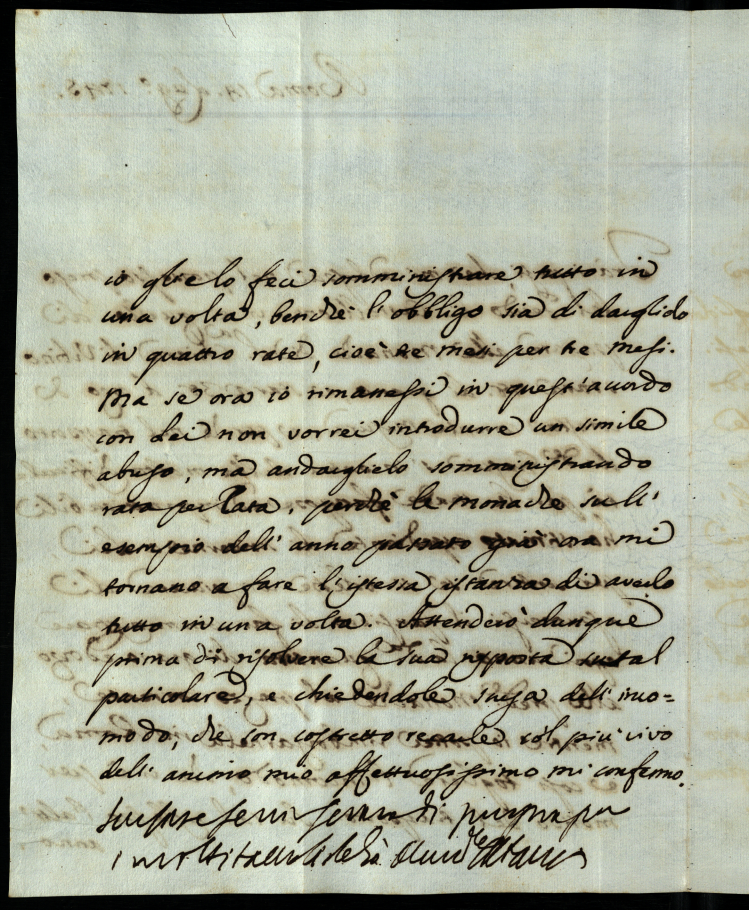 io glie lo feci somministrare tutto in
una volta, benchè l'obbligo sia di darglielo
in quattro rate, cioè tre mesi per tre mesi.
Ma se ora io rimanessi in quest'acordo
con Lei non vorrei introdurre un simile
abuso, ma andarglielo somministrando
rata per rata, perchè le monache sull'
esempio dell'anno passato già ora mi
tornano a fare l'istessa istanza di averlo
tutto in una volta. Attenderò dunque
prima di risolvere la sua risposta su tal
particolare, e chiedendole scusa dell'inco=
modo, che son costretto recarle col più vivo
dell'animo mio affettuosissimo mi confermo.